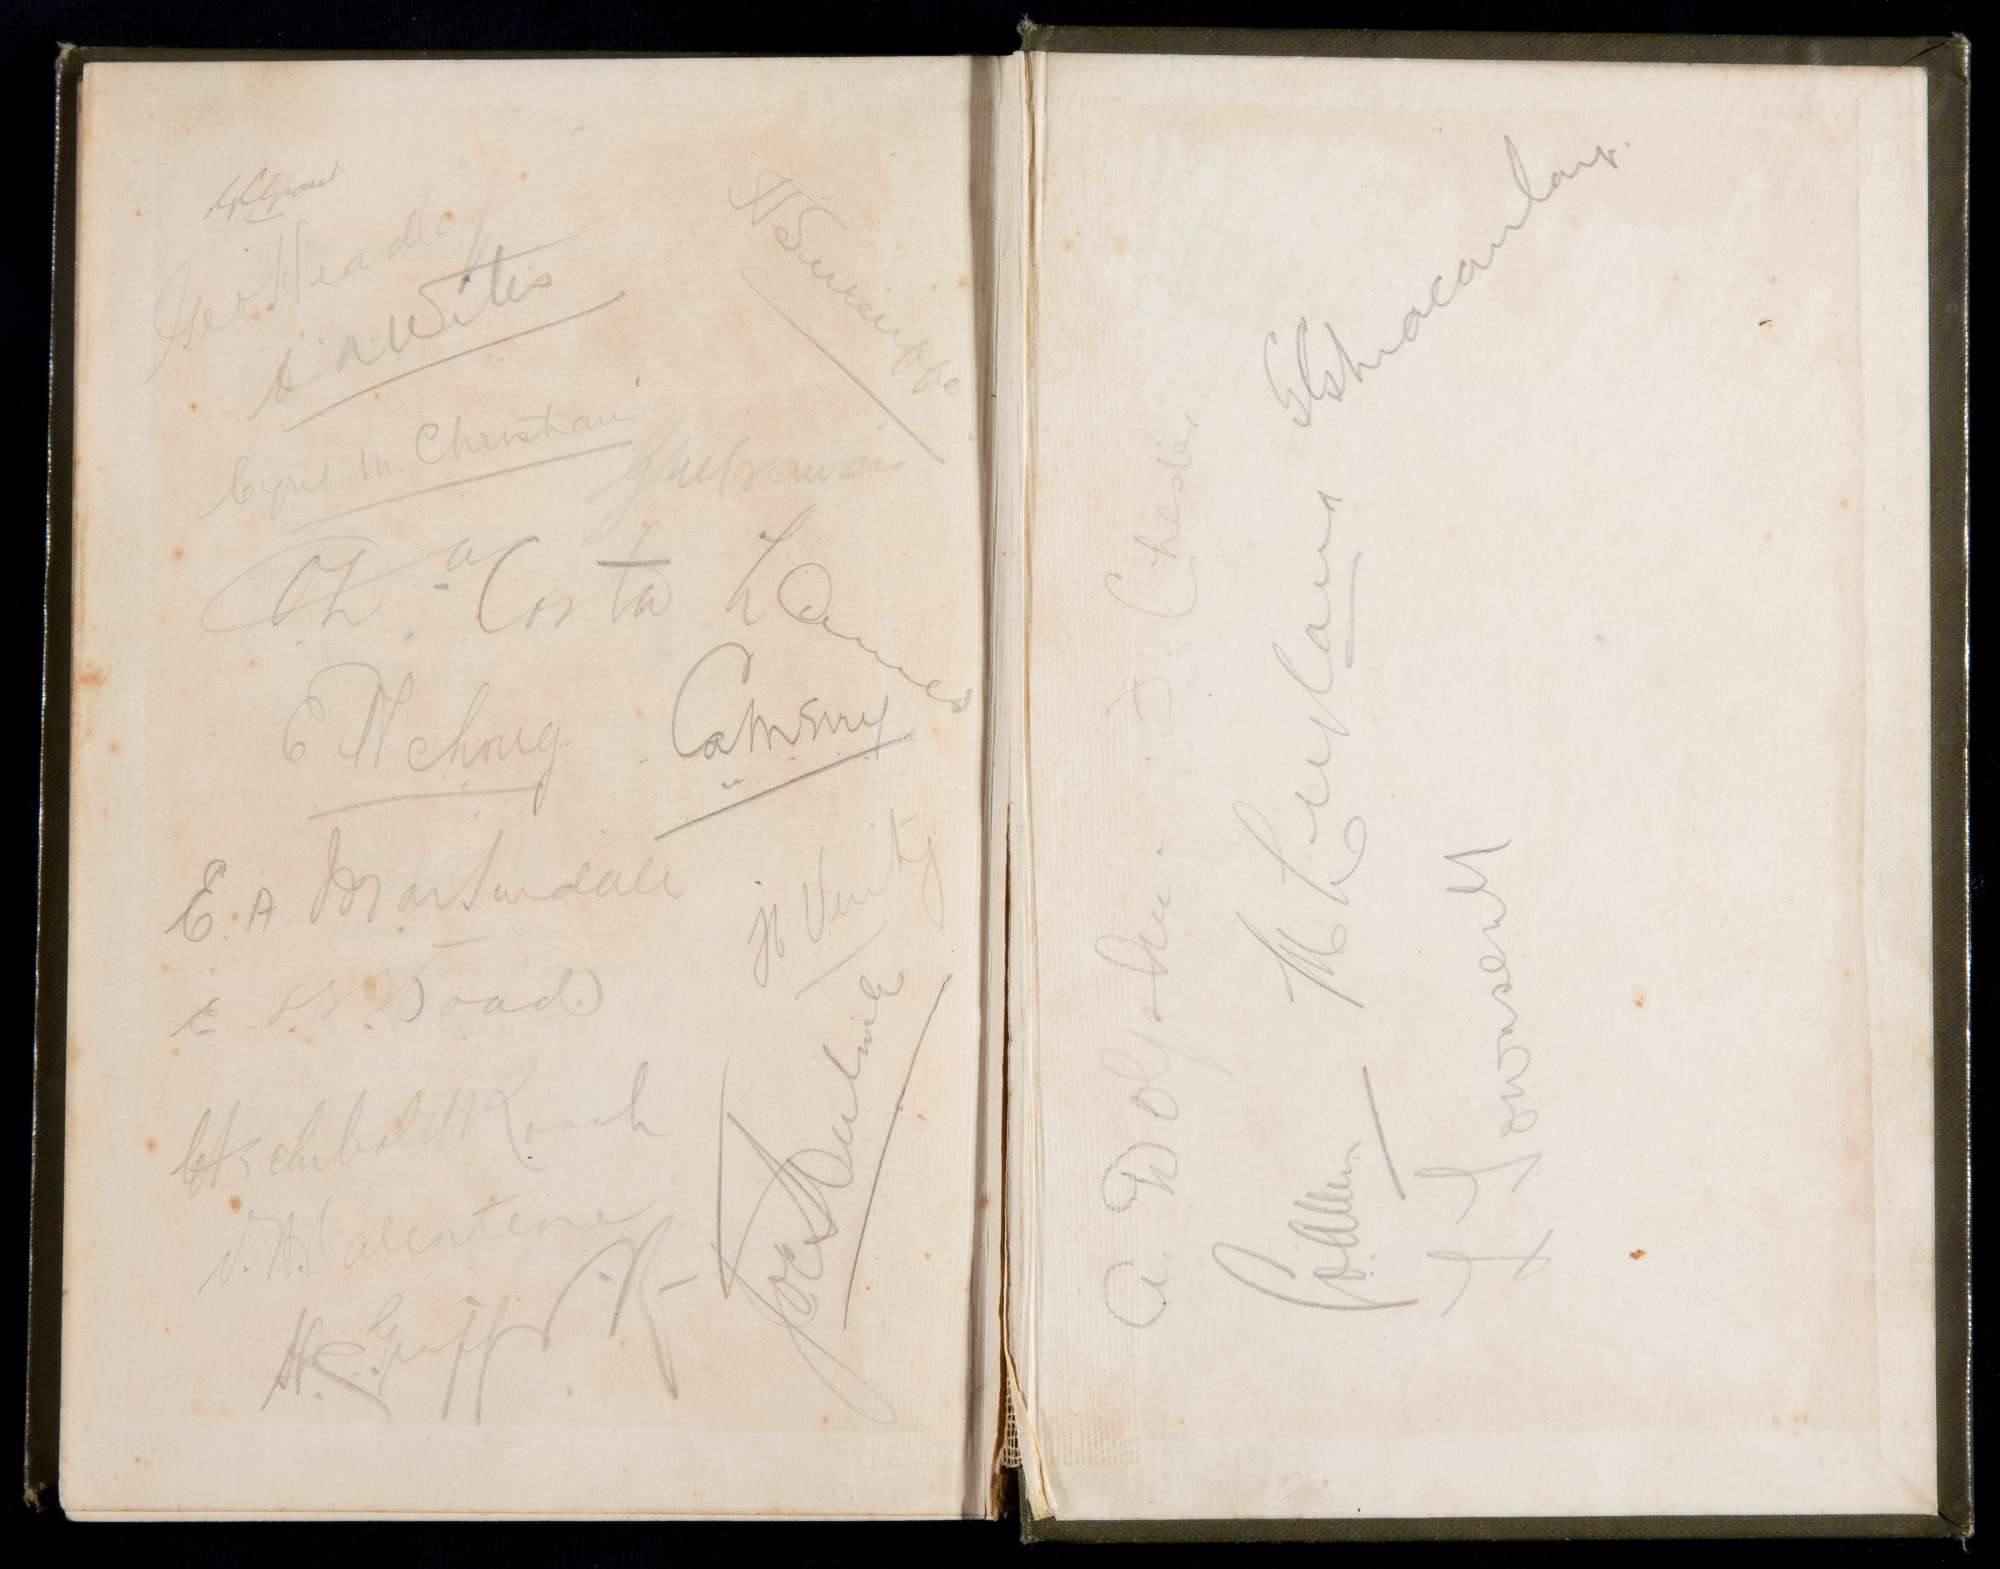 G C Grant
Geo Headley
C. A. Wiles
Cyril. M. Christiani
G N Francis
O. C. Da Costa
L Ames
E Achong
C A Merry
E. A. Martindale
H Verity
E. L. G. Hoad
C Archibald Roach
V. A. Valentine
H. C. Griffith
Joe Hulme
H Sutcliffe
A. Dolphin
D. Chester
G. O. Allen
M Leyland
E G Macaulay
L F Townsend